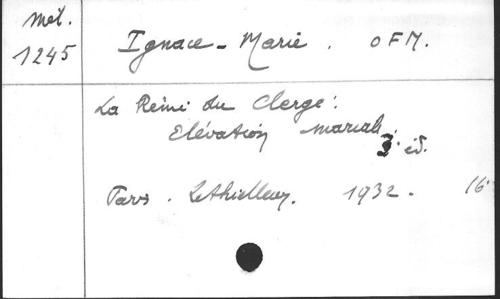 Met.
1245
Ignace-Marie. OFM.
La Reine du Clergé:
Elévation mariale.
3. éd.
Paris. Lethielleux. 1932. 16°